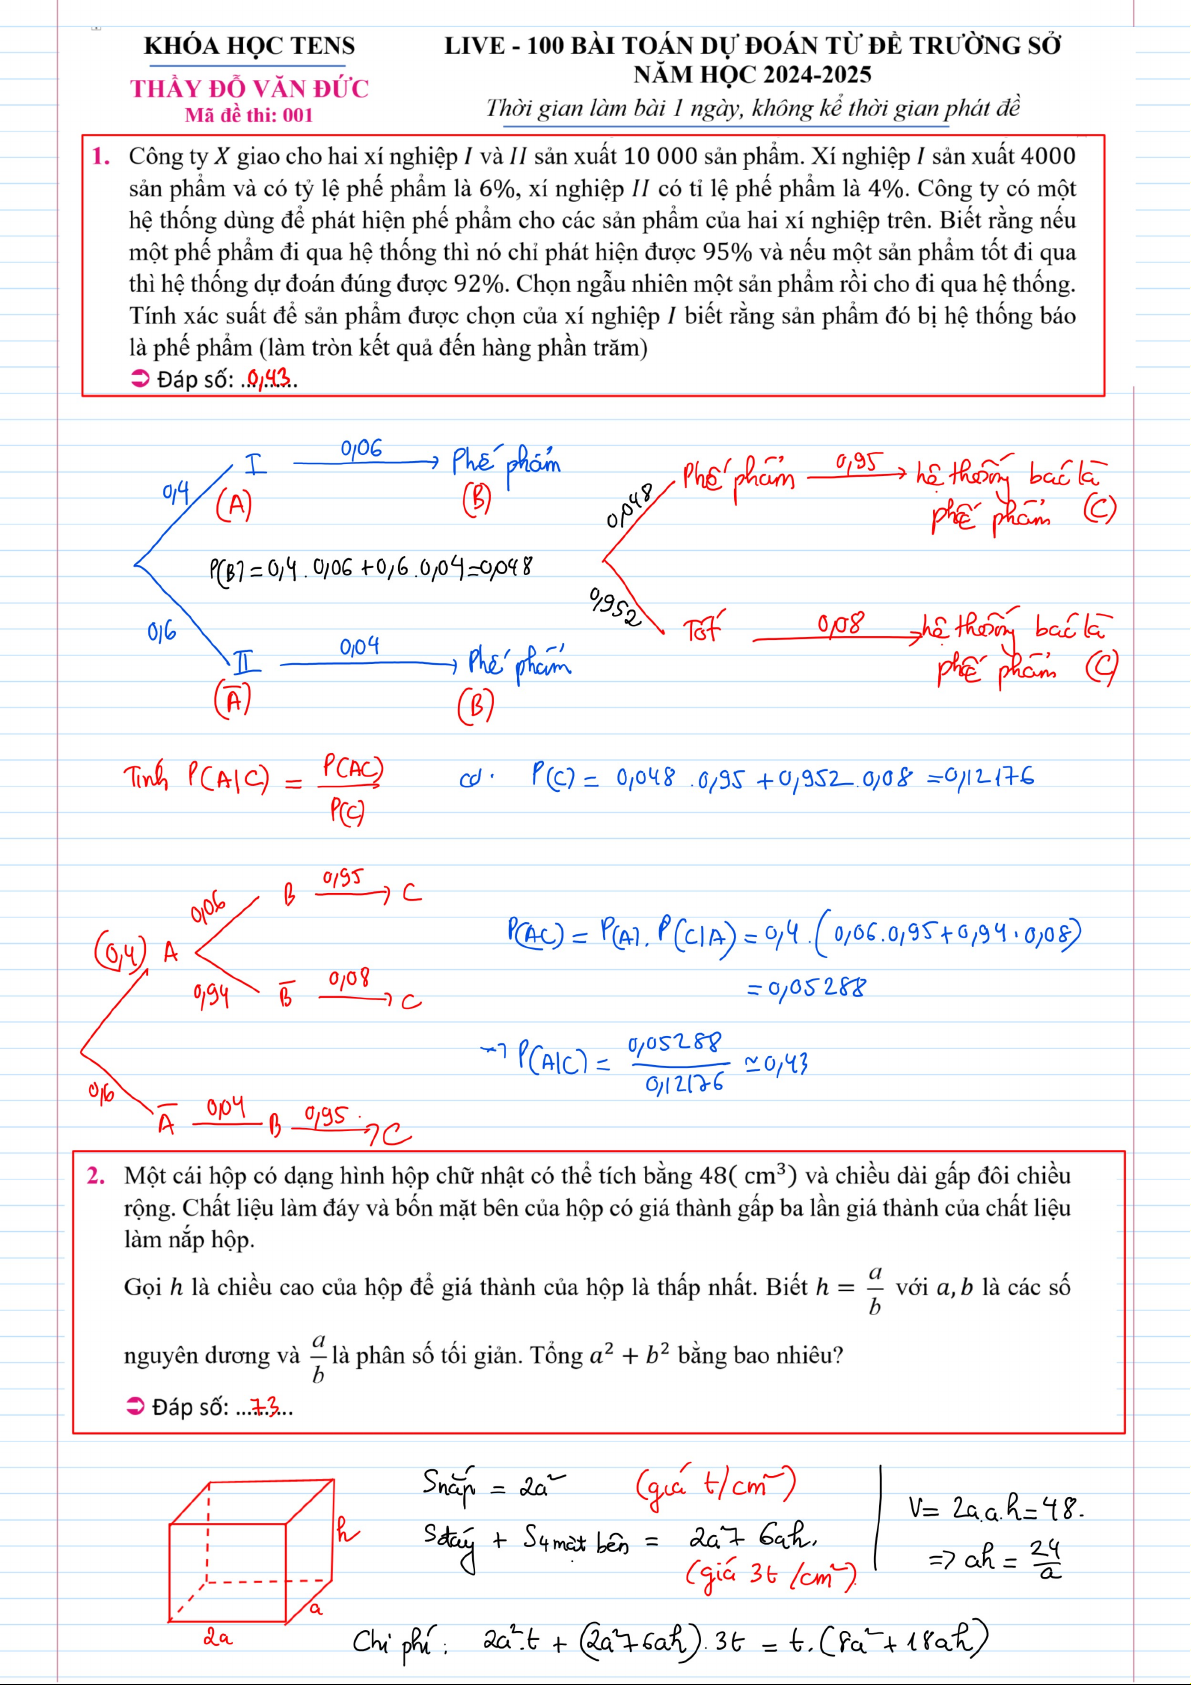 KHÓA HỌC TENS
THẦY ĐỖ VĂN ĐỨC
Mã đề thi: 001
LIVE - 100 BÀI TOÁN DỰ ĐOÁN TỪ ĐỀ TRƯỜNG SỞ
NĂM HỌC 2024-2025
Thời gian làm bài 1 ngày, không kể thời gian phát đề
1. Công ty X giao cho hai xí nghiệp I và II sản xuất 10 000 sản phẩm. Xí nghiệp I sản xuất 4000
sản phẩm và có tỷ lệ phế phẩm là 6%, xí nghiệp II có tỉ lệ phế phẩm là 4%. Công ty có một
hệ thống dùng để phát hiện phế phẩm cho các sản phẩm của hai xí nghiệp trên. Biết rằng nếu
một phế phẩm đi qua hệ thống thì nó chỉ phát hiện được 95% và nếu một sản phẩm tốt đi qua
thì hệ thống dự đoán đúng được 92%. Chọn ngẫu nhiên một sản phẩm rồi cho đi qua hệ thống.
Tính xác suất để sản phẩm được chọn của xí nghiệp I biết rằng sản phẩm đó bị hệ thống báo
là phế phẩm (làm tròn kết quả đến hàng phần trăm)
➲ Đáp số: ..0,43..
0,4 I (A) 0,06 Phế phẩm (B)
P(B) = 0,4 . 0,06 + 0,6 . 0,04 = 0,048
0,6 II (A̅) 0,04 Phế phẩm (B)
0,048 Phế phẩm 0,95 hệ thống báo là
phế phẩm (C)
0,952 Tốt 0,08 hệ thống báo là
phế phẩm (C)
Tính P(A|C) = P(AC)/P(C) có . P(C) = 0,048 . 0,95 + 0,952 . 0,08 = 0,12176
(0,4) A 0,06 B 0,95 C
0,94 B̅ 0,08 C
0,6 A̅ 0,04 B 0,95 C
P(AC) = P(A). P(C|A) = 0,4 . (0,06.0,95 + 0,94 . 0,08)
= 0,05288
→ P(A|C) = 0,05288/0,12176 ≃ 0,43
2. Một cái hộp có dạng hình hộp chữ nhật có thể tích bằng 48( cm³) và chiều dài gấp đôi chiều
rộng. Chất liệu làm đáy và bốn mặt bên của hộp có giá thành gấp ba lần giá thành của chất liệu
làm nắp hộp.
Gọi h là chiều cao của hộp để giá thành của hộp là thấp nhất. Biết h = a/b với a, b là các số
nguyên dương và a/b là phân số tối giản. Tổng a² + b² bằng bao nhiêu?
➲ Đáp số: ...73...
h
a
2a
Snắp = 2a² (giá t/cm²)
Sđáy + S4 mặt bên = 2a² + 6ah.
(giá 3t /cm²)
V = 2a.a.h = 48.
=> ah = 24/a
Chi phí: 2a².t + (2a² + 6ah).3t = t.(8a² + 18ah)